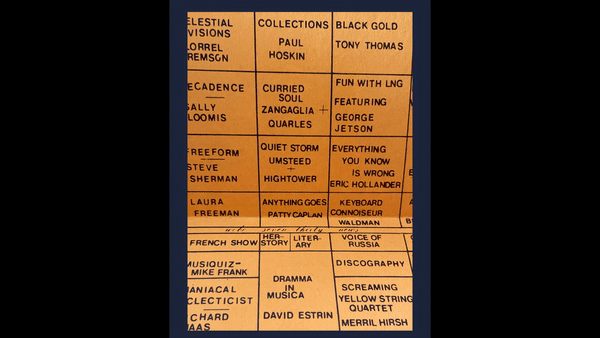 ELESTIAL
VISIONS
LORREL
REMSON
COLLECTIONS
PAUL
HOSKIN
BLACK GOLD
TONY THOMAS
ECADENCE
SALLY
LOOMIS
CURRIED
SOUL
ZANGAGLIA +
QUARLES
FUN WITH LNG
FEATURING
GEORGE
JETSON
FREEFORM
STEVE
SHERMAN
QUIET STORM
UMSTEED
+
HIGHTOWER
EVERYTHING
YOU KNOW
IS WRONG
ERIC HOLLANDER
LAURA
FREEMAN
ANYTHING GOES
PATTY CAPLAN
KEYBOARD
CONNOISEUR
WALDMAN
seven thirty news
FRENCH SHOW
HER-
STORY
LITER-
ARY
VOICE OF
RUSSIA
MUSIQUIZ-
MIKE FRANK
ANIACAL
CLECTICIST
CHARD
AAS
DRAMMA
IN
MUSICA
DAVID ESTRIN
DISCOGRAPHY
SCREAMING
YELLOW STRING
QUARTET
MERRIL HIRSH